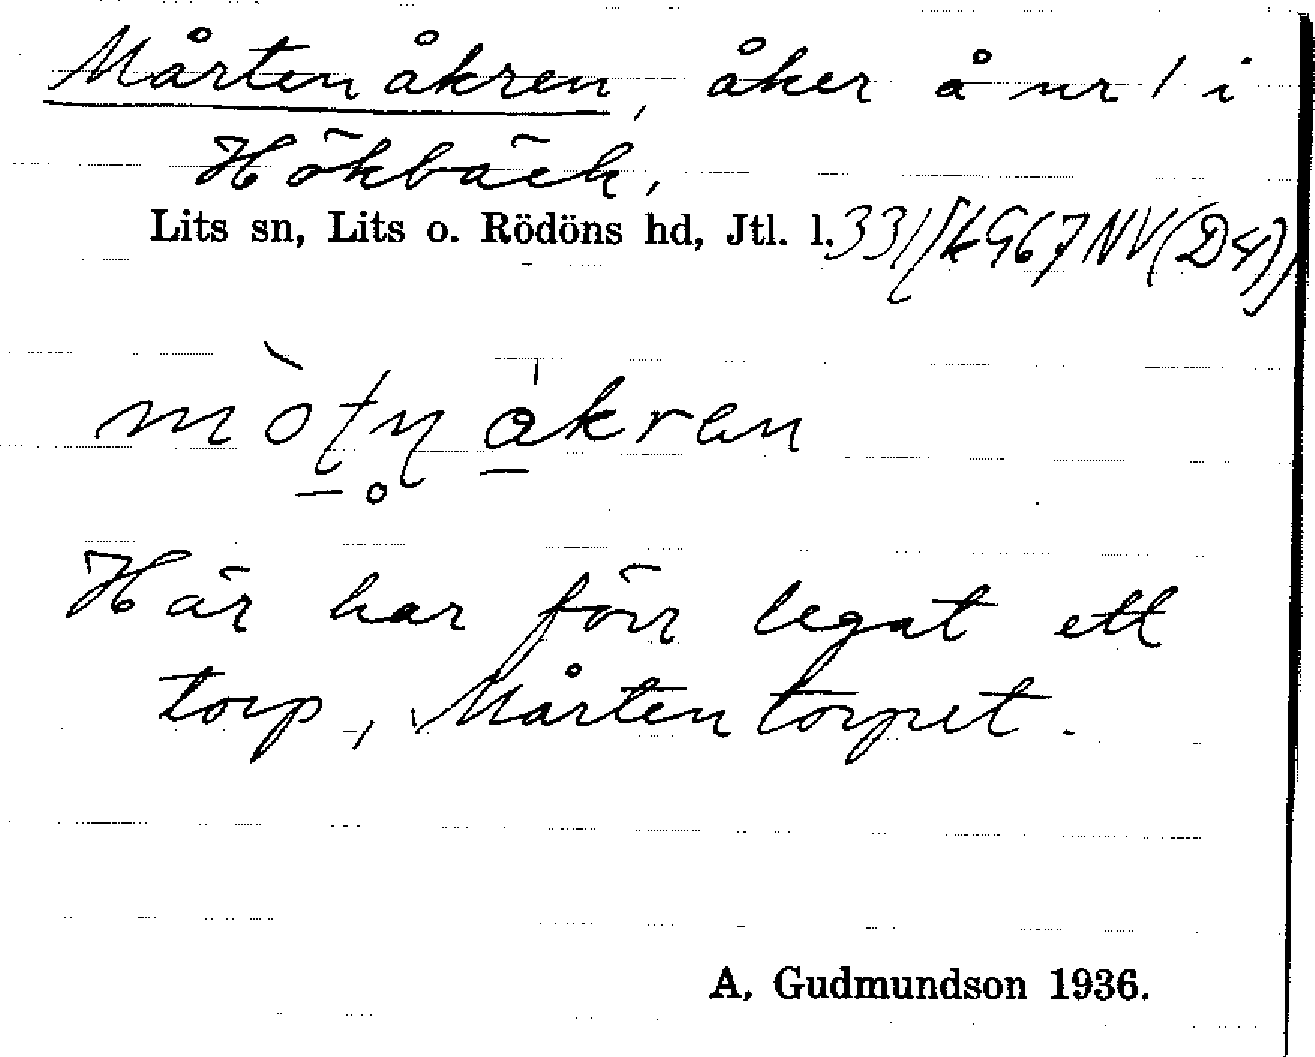 Mårtenåkren, åker å nr 1 i
Hökbäck,
Lits sn, Lits o. Rödöns hd, Jtl. l.
mòtn åkren
Här har förr legat ett
torp, Mårtentorpet.
A. Gudmundson 1936.